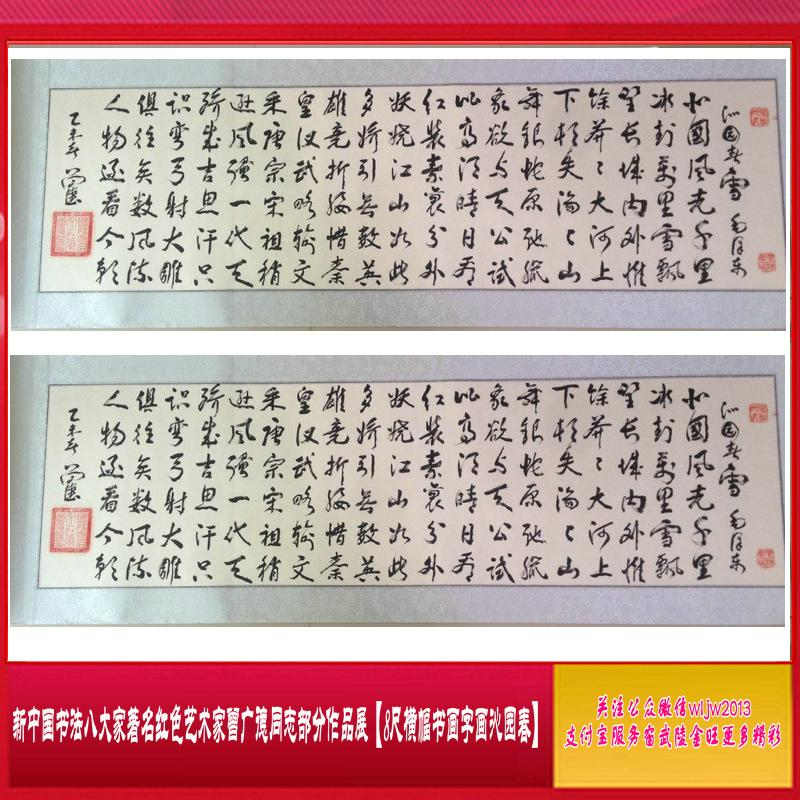 沁园春雪 毛泽东
北國风光千里
冰封萬里雪飘
望长城内外惟
馀莽〻大河上
下顿失滔〻山
舞银蛇原驰蜡
象欲与天公试
比高须晴日看
红装素裹分外
妖娆江山如此
多娇引无数英
雄竞折腰惜秦
皇汉武略输文
采唐宗宋祖稍
逊风骚一代天
骄成吉思汗只
识弯弓射大雕
俱往矣数风流
人物还看今朝
乙未春
沁园春雪 毛泽东
北國风光千里
冰封萬里雪飘
望长城内外惟
馀莽〻大河上
下顿失滔〻山
舞银蛇原驰蜡
象欲与天公试
比高须晴日看
红装素裹分外
妖娆江山如此
多娇引无数英
雄竞折腰惜秦
皇汉武略输文
采唐宗宋祖稍
逊风骚一代天
骄成吉思汗只
识弯弓射大雕
俱往矣数风流
人物还看今朝
乙未春
新中国书法八大家著名红色艺术家習广德同志部分作品展【8尺横幅书画字画沁园春】
关注公众微信wljw2013
支付宝服务窗武陵金旺更多精彩